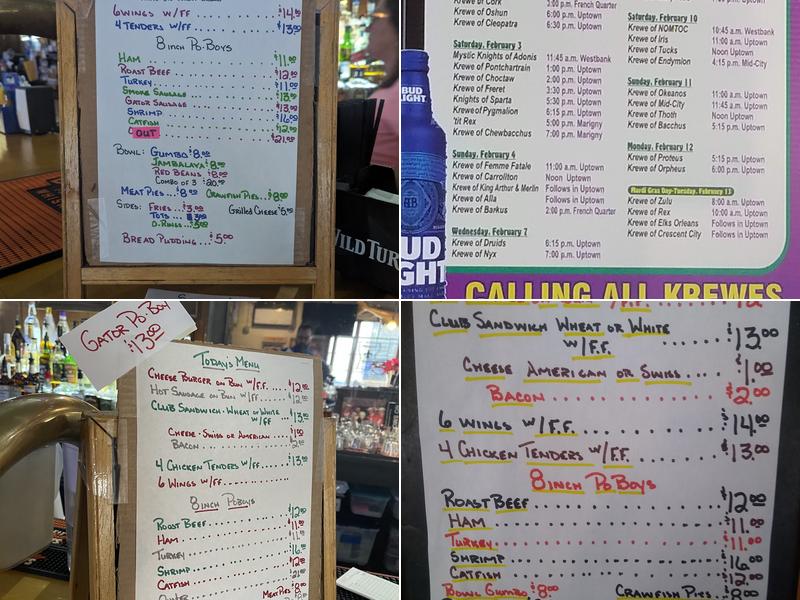 6 WINGS W/FF $14.00
4 TENDERS W/FF $13.00
8 INCH PO-BOYS
HAM $11.00
ROAST BEEF $12.00
TURKEY $11.00
SMOKE SAUSAGE $13.00
GATOR SAUSAGE $13.00
SHRIMP $16.00
CATFISH $12.00
OUT $21.00
BOWL: GUMBO $8.00
JAMBALAYA $8.00
RED BEANS $8.00
COMBO OF 3 $20.00
MEAT PIES...$8.00 CRAWFISH PIES...$8.00
SIDES: FRIES...$3.00 GRILLED CHEESE $5.00
TOTS
O.RINGS
BREAD PUDDING...$5.00
WILD TUR
Krewe of Cork 3:00 p.m. French Quarter
Krewe of Oshun 6:00 p.m. Uptown
Krewe of Cleopatra 6:30 p.m. Uptown
Saturday, February 3
Mystic Knights of Adonis 11:45 a.m. Westbank
Krewe of Pontchartrain 1:00 p.m. Uptown
Krewe of Choctaw 2:00 p.m. Uptown
Krewe of Freret 3:30 p.m. Uptown
Knights of Sparta 5:30 p.m. Uptown
Krewe of Pygmalion 6:15 p.m. Uptown
'tit Rex 5:00 p.m. Marigny
Krewe of Chewbacchus 7:00 p.m. Marigny
Sunday, February 4
Krewe of Femme Fatale 11:00 a.m. Uptown
Krewe of Carrollton Noon Uptown
Krewe of King Arthur & Merlin Follows in Uptown
Krewe of Alla Follows in Uptown
Krewe of Barkus 2:00 p.m. French Quarter
Wednesday, February 7
Krewe of Druids 6:15 p.m. Uptown
Krewe of Nyx 7:00 p.m. Uptown
Saturday, February 10
Krewe of NOMTOC 10:45 a.m. Westbank
Krewe of Iris 11:00 a.m. Uptown
Krewe of Tucks Noon Uptown
Krewe of Endymion 4:15 p.m. Mid-City
Sunday, February 11
Krewe of Okeanos 11:00 a.m. Uptown
Krewe of Mid-City 11:45 a.m. Uptown
Krewe of Thoth Noon Uptown
Krewe of Bacchus 5:15 p.m. Uptown
Monday, February 12
Krewe of Proteus 5:15 p.m. Uptown
Krewe of Orpheus 6:00 p.m. Uptown
Mardi Gras Day-Tuesday, February 13
Krewe of Zulu 8:00 a.m. Uptown
Krewe of Rex 10:00 a.m. Uptown
Krewe of Elks Orleans Follows in Uptown
Krewe of Crescent City Follows in Uptown
BUD
LIGHT
BUD
LIGHT
CALLING ALL KREWES
GATOR PO-BOY
$13.00
TODAY'S MENU
CHEESE BURGER ON BUN W/F.F. $12.00
HOT SAUSAGE ON BUN W/F.F. $12.00
CLUB SANDWICH-WHEAT OR WHITE W/FF $13.00
CHEESE-SWISS OR AMERICAN $1.00
BACON $2.00
4 CHICKEN TENDERS W/FF $13.00
6 WINGS W/FF
8 INCH POBOYS
ROAST BEEF $12.00
HAM $11.00
TURKEY
SHRIMP $16.00
CATFISH $12.00
MEAT PIES $8.00
CLUB SANDWICH WHEAT OR WHITE
W/F.F. $13.00
CHEESE AMERICAN OR SWISS $1.00
BACON $2.00
6 WINGS W/F.F. $14.00
4 CHICKEN TENDERS W/F.F. $13.00
8 INCH PO.BOYS
ROAST BEEF $12.00
HAM $11.00
TURKEY $11.00
SHRIMP $16.00
CATFISH $12.00
BOWL GUMBO $8.00 CRAWFISH PIES